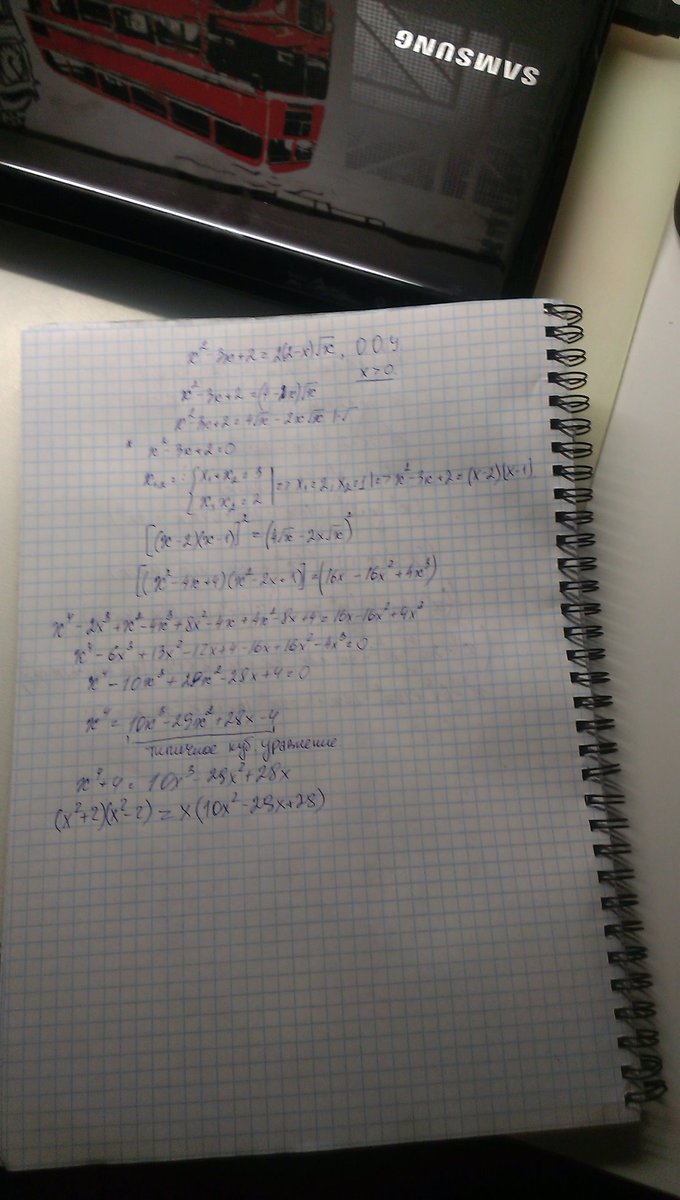 SAMSUNG
x² - 3x + 2 = 2(2-x)√x, О О У
x > 0
x² - 3x + 2 = (4 - 2x)√x
x² 3x + 2 = 4√x - 2x√x
* x² - 3x + 2 = 0
x₁,₂ = { x₁ + x₂ = 3 | => x₁ = 2, x₂ = 1 | => x² - 3x + 2 = (x-2)(x-1)
x₁ x₂ = 2
[(x-2)(x-1)]² = (4√x - 2x√x)²
[(x² - 4x + 4)(x² - 2x + 1)] = (16x - 16x² + 4x³)
x⁴ - 2x³ + x² - 4x³ + 8x² - 4x + 4x² - 8x + 4 = 16x - 16x² + 4x³
x⁴ - 6x³ + 13x² - 12x + 4 - 16x + 16x² - 4x³ = 0
x⁴ - 10x³ + 29x² - 28x + 4 = 0
x⁴ = 10x³ - 29x² + 28x - 4
типичное куб. уравнение
x⁴ + 4 = 10x³ - 29x² + 28x
(x² + 2)(x² - 2) = x(10x² - 29x + 28)